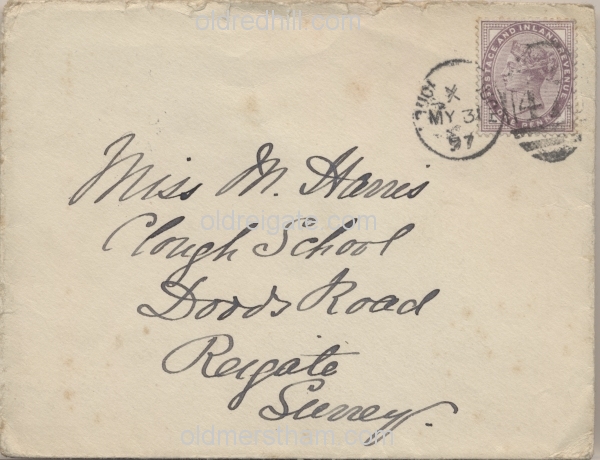 oldredhill.com
POSTAGE AND INLAND REVENUE
X
MY 31
97
14
Miss M. Harris
oldreigate.com
Clough School
Doods Road
Reigate
Surrey.
oldmerstham.com